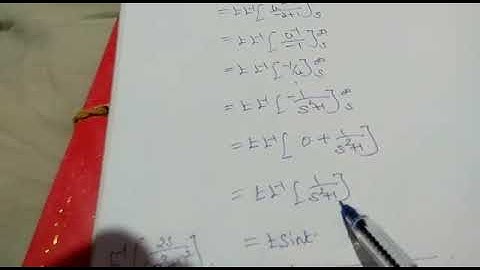 = t L⁻¹ [ u⁻²⁺¹ / -2+1 ]ₛ^∞
= t L⁻¹ [ u⁻¹ / -1 ]ₛ^∞
= t L⁻¹ [ -1/u ]ₛ^∞
= t L⁻¹ [ -1 / s²+1 ]ₛ^∞
= t L⁻¹ [ 0 + 1 / s²+1 ]
= t L⁻¹ [ 1 / s²+1 ]
= t sint